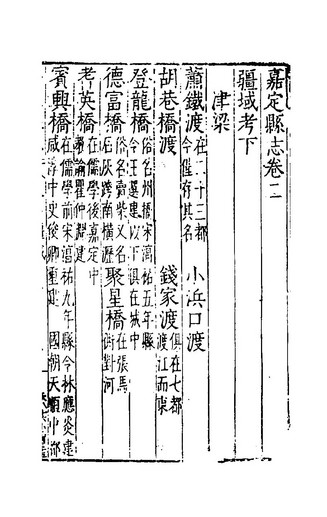 嘉定縣志卷二
疆域考下
津梁
蕭鐵渡在二十三都今僅存其名 小浜口渡
胡巷橋渡 錢家渡俱在七都渡江而東
登龍橋俗名州橋宋淳祐五年縣令王選建以下俱在城中
德富橋俗名賣柴又名跨南橫瀝 聚星橋在張馬衖對河
考英橋在儒學後嘉定中建
賓興橋在儒學前宋淳祐九年縣令林應炎建咸淳中史俊卿重建 國朝天順中